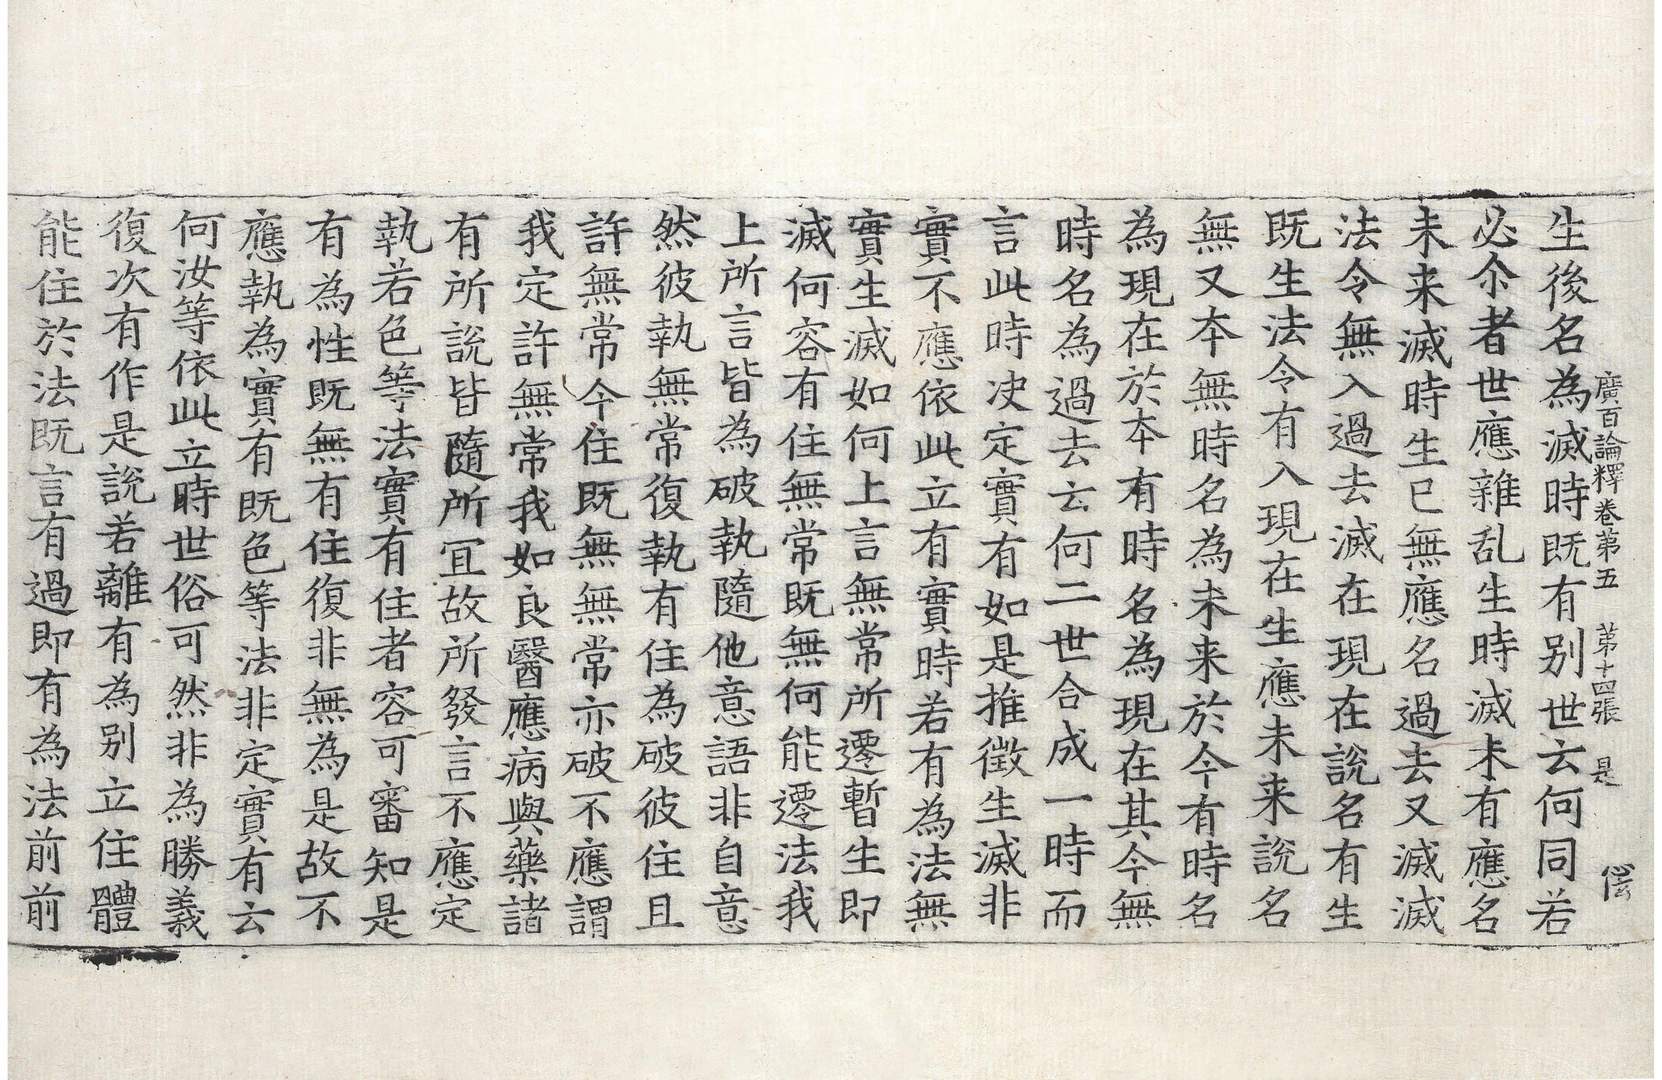 廣百論釋卷第五　第十四張　是
生後名為滅時既有别世云何同若
必尒者世應雜乱生時滅未有應名
未来滅時生已無應名過去又滅滅
法令無入過去滅在現在說名有生
既生法令有入現在生應未来說名
無又本無時名為未来於今有時名
為現在於本有時名為現在其今無
時名為過去云何二世合成一時而
言此時决定實有如是推徵生滅非
實不應依此立有實時若有為法無
實生滅如何上言無常所遷暫生即
滅何容有住無常既無何能遷法我
上所言皆為破執隨他意語非自意
然彼執無常復執有住為破彼住且
許無常今住既無無常亦破不應謂
我定許無常我如良醫應病與藥諸
有所說皆隨所冝故所發言不應定
執若色等法實有住者容可審知是
有為性既無有住復非無為是故不
應執為實有既色等法非定實有云
何汝等依此立時世俗可然非為勝義
復次有作是說若離有為别立住體
能住於法既言有過即有為法前前